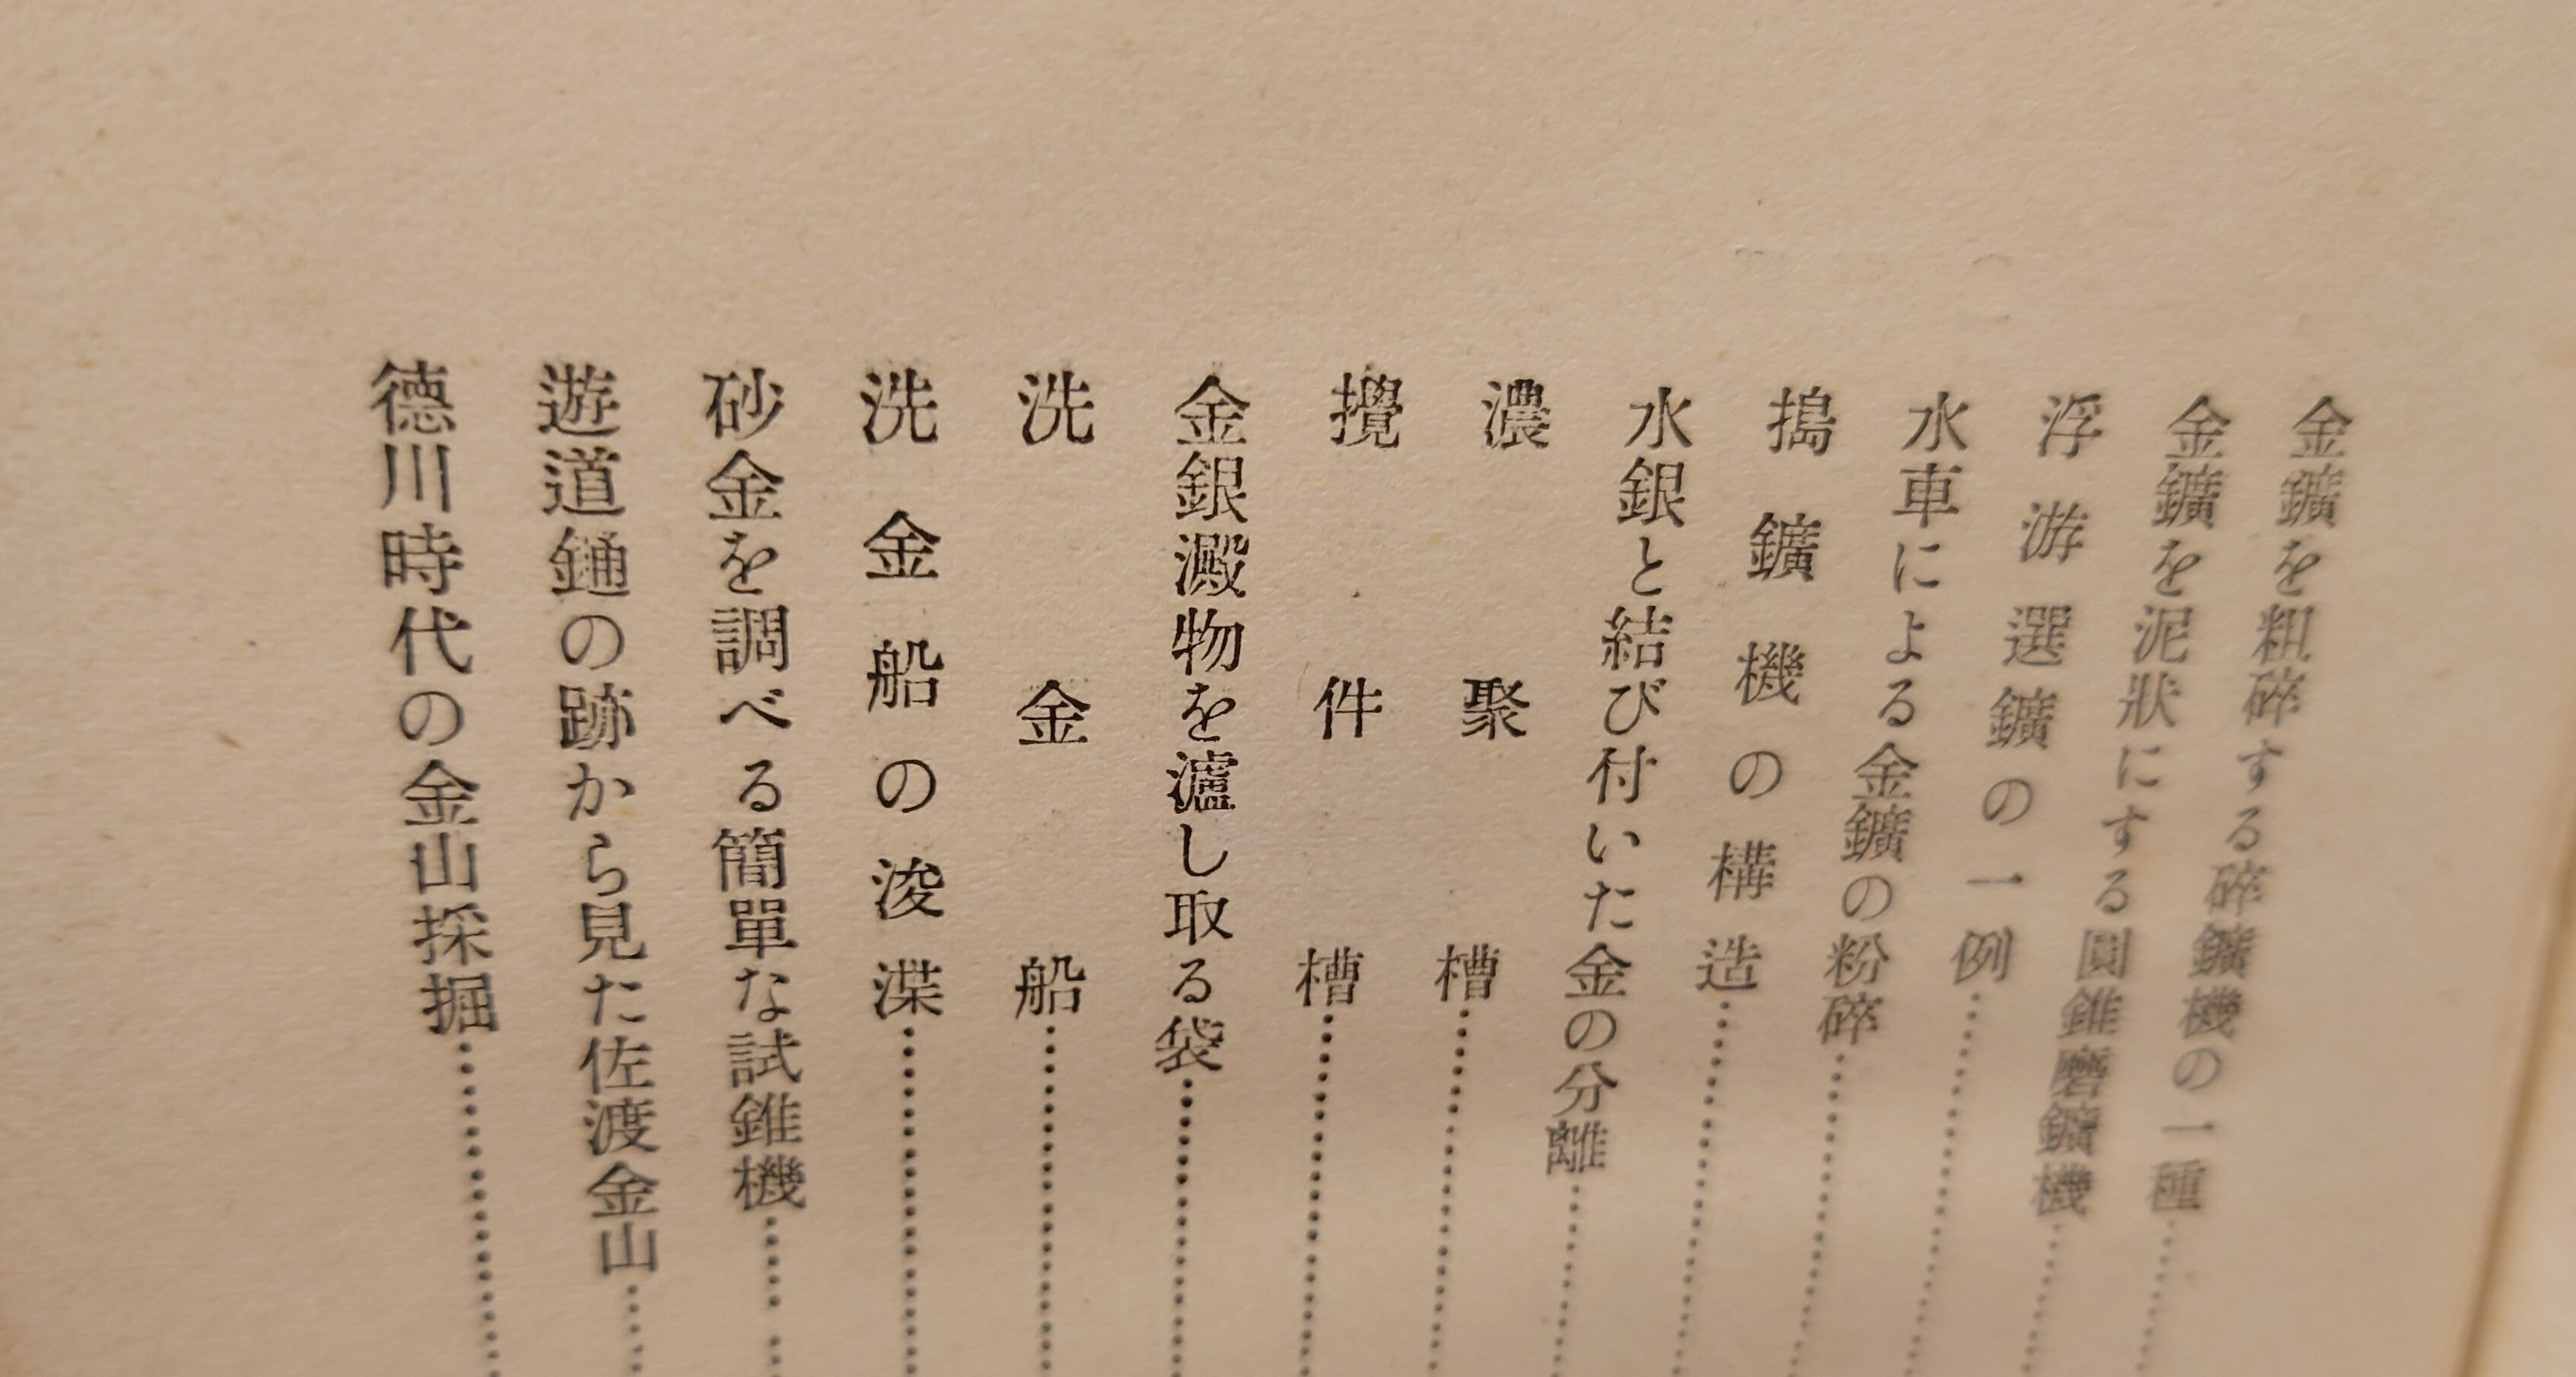 金鑛を粗碎する碎鑛機の一種
金鑛を泥狀にする圓錐磨鑛機
浮游選鑛の一例
水車による金鑛の粉碎
搗鑛機の構造
水銀と結び付いた金の分離
濃聚槽
攪件槽
金銀澱物を濾し取る袋
洗金船
洗金船の浚渫
砂金を調べる簡單な試錐機
遊道鎚の跡から見た佐渡金山
德川時代の金山採掘